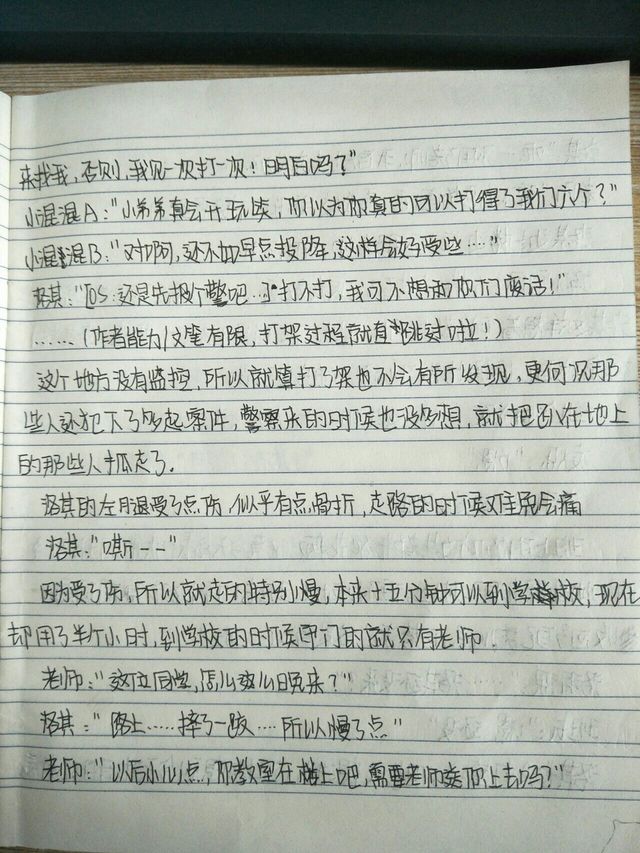 来找我,否则,我见一次打一次!明白吗?"
小混混A:"小弟弟真会开玩笑,你以为你真的可以打得了我们六个?"
小混混B:"对啊,还不如早点投降,这样会好受些……"
洛其:"[OS:还是先报个警吧…]打不打,我可不想和你们废话!"
……(作者能力/文笔有限,打架过程就自己跳过啦!)
这个地方没有监控,所以就算打了架也不会有所发现,更何况那
些人还犯下了多起案件,警察来的时候也没多想,就把趴在地上
的那些人抓走了.
洛其的左腿受了点伤,似乎有点骨折,走路的时候难免会痛
洛其:"嘶——"
因为受了伤,所以就走的特别慢,本来十五分钟可以到学校,现在
却用了半个小时,到学校的时候守门的就只有老师.
老师:"这位同学,怎么这么晚来?"
洛其:"路上……摔了一跤……所以慢了点"
老师:"以后小心点,你教室在楼上吧,需要老师送你上去吗?"